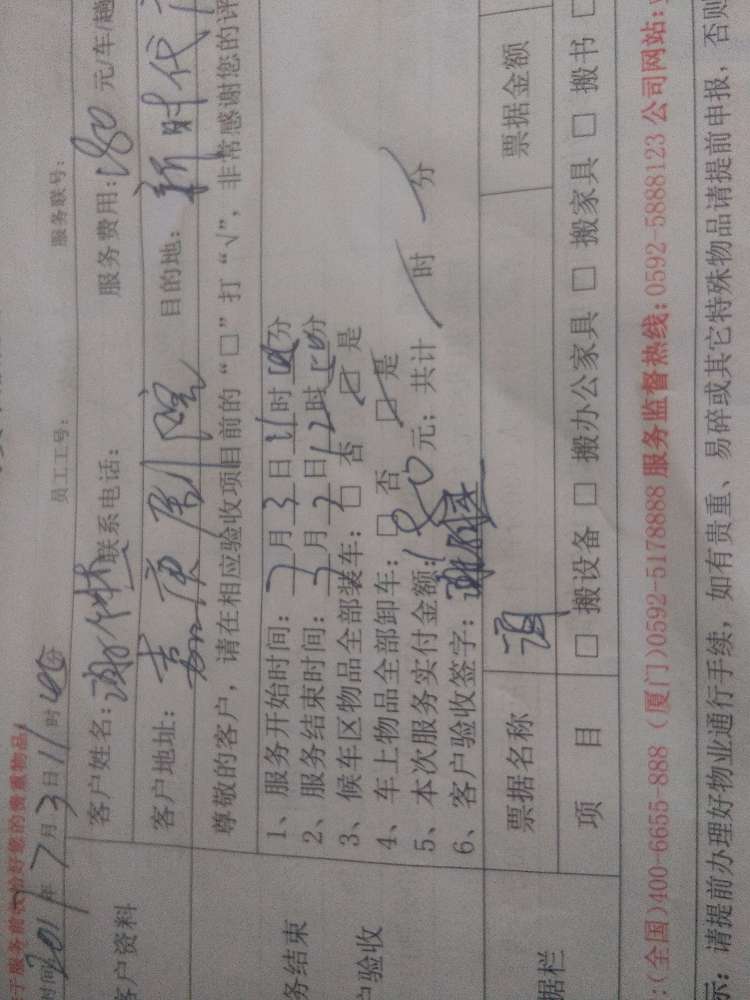 于服务前收拾好您的贵重物品
时间 2011年7月3日11时40分 员工工号: 服务联号:
客户资料
客户姓名: 谢 联系电话: 服务费用: 180 元/车/趟
客户地址: 嘉庚剧院 目的地: 新时代
尊敬的客户, 请在相应验收项目前的“□”打“√”, 非常感谢您的评
务结束
户验收
1、服务开始时间: 7月3日11时40分
2、服务结束时间: 7月3日12时50分
3、候车区物品全部装车: □ 否 ☑ 是
4、车上物品全部卸车: □ 否 ☑ 是
5、本次服务实付金额: 180元; 共计 时 分
6、客户验收签字: 谢
据栏
票据名称 票据金额
项 目 □ 搬设备 □ 搬办公家具 □ 搬家具 □ 搬书 □
:(全国)400-6655-888 (厦门)0592-5178888 服务监督热线: 0592-5888123 公司网站:
示: 请提前办理好物业通行手续, 如有贵重、易碎或其它特殊物品请提前申报, 否则